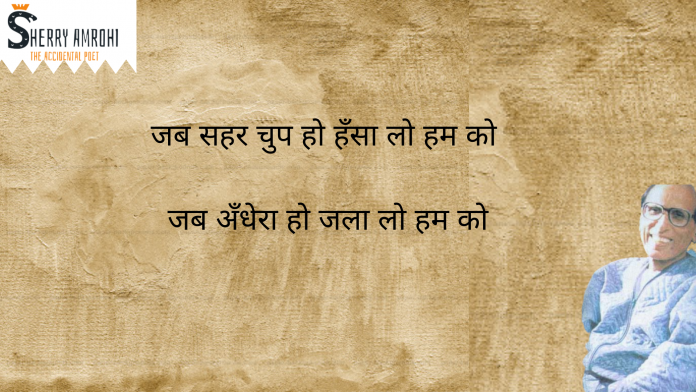 SHERRY AMROHI
THE ACCIDENTAL POET
जब सहर चुप हो हँसा लो हम को
जब अँधेरा हो जला लो हम को